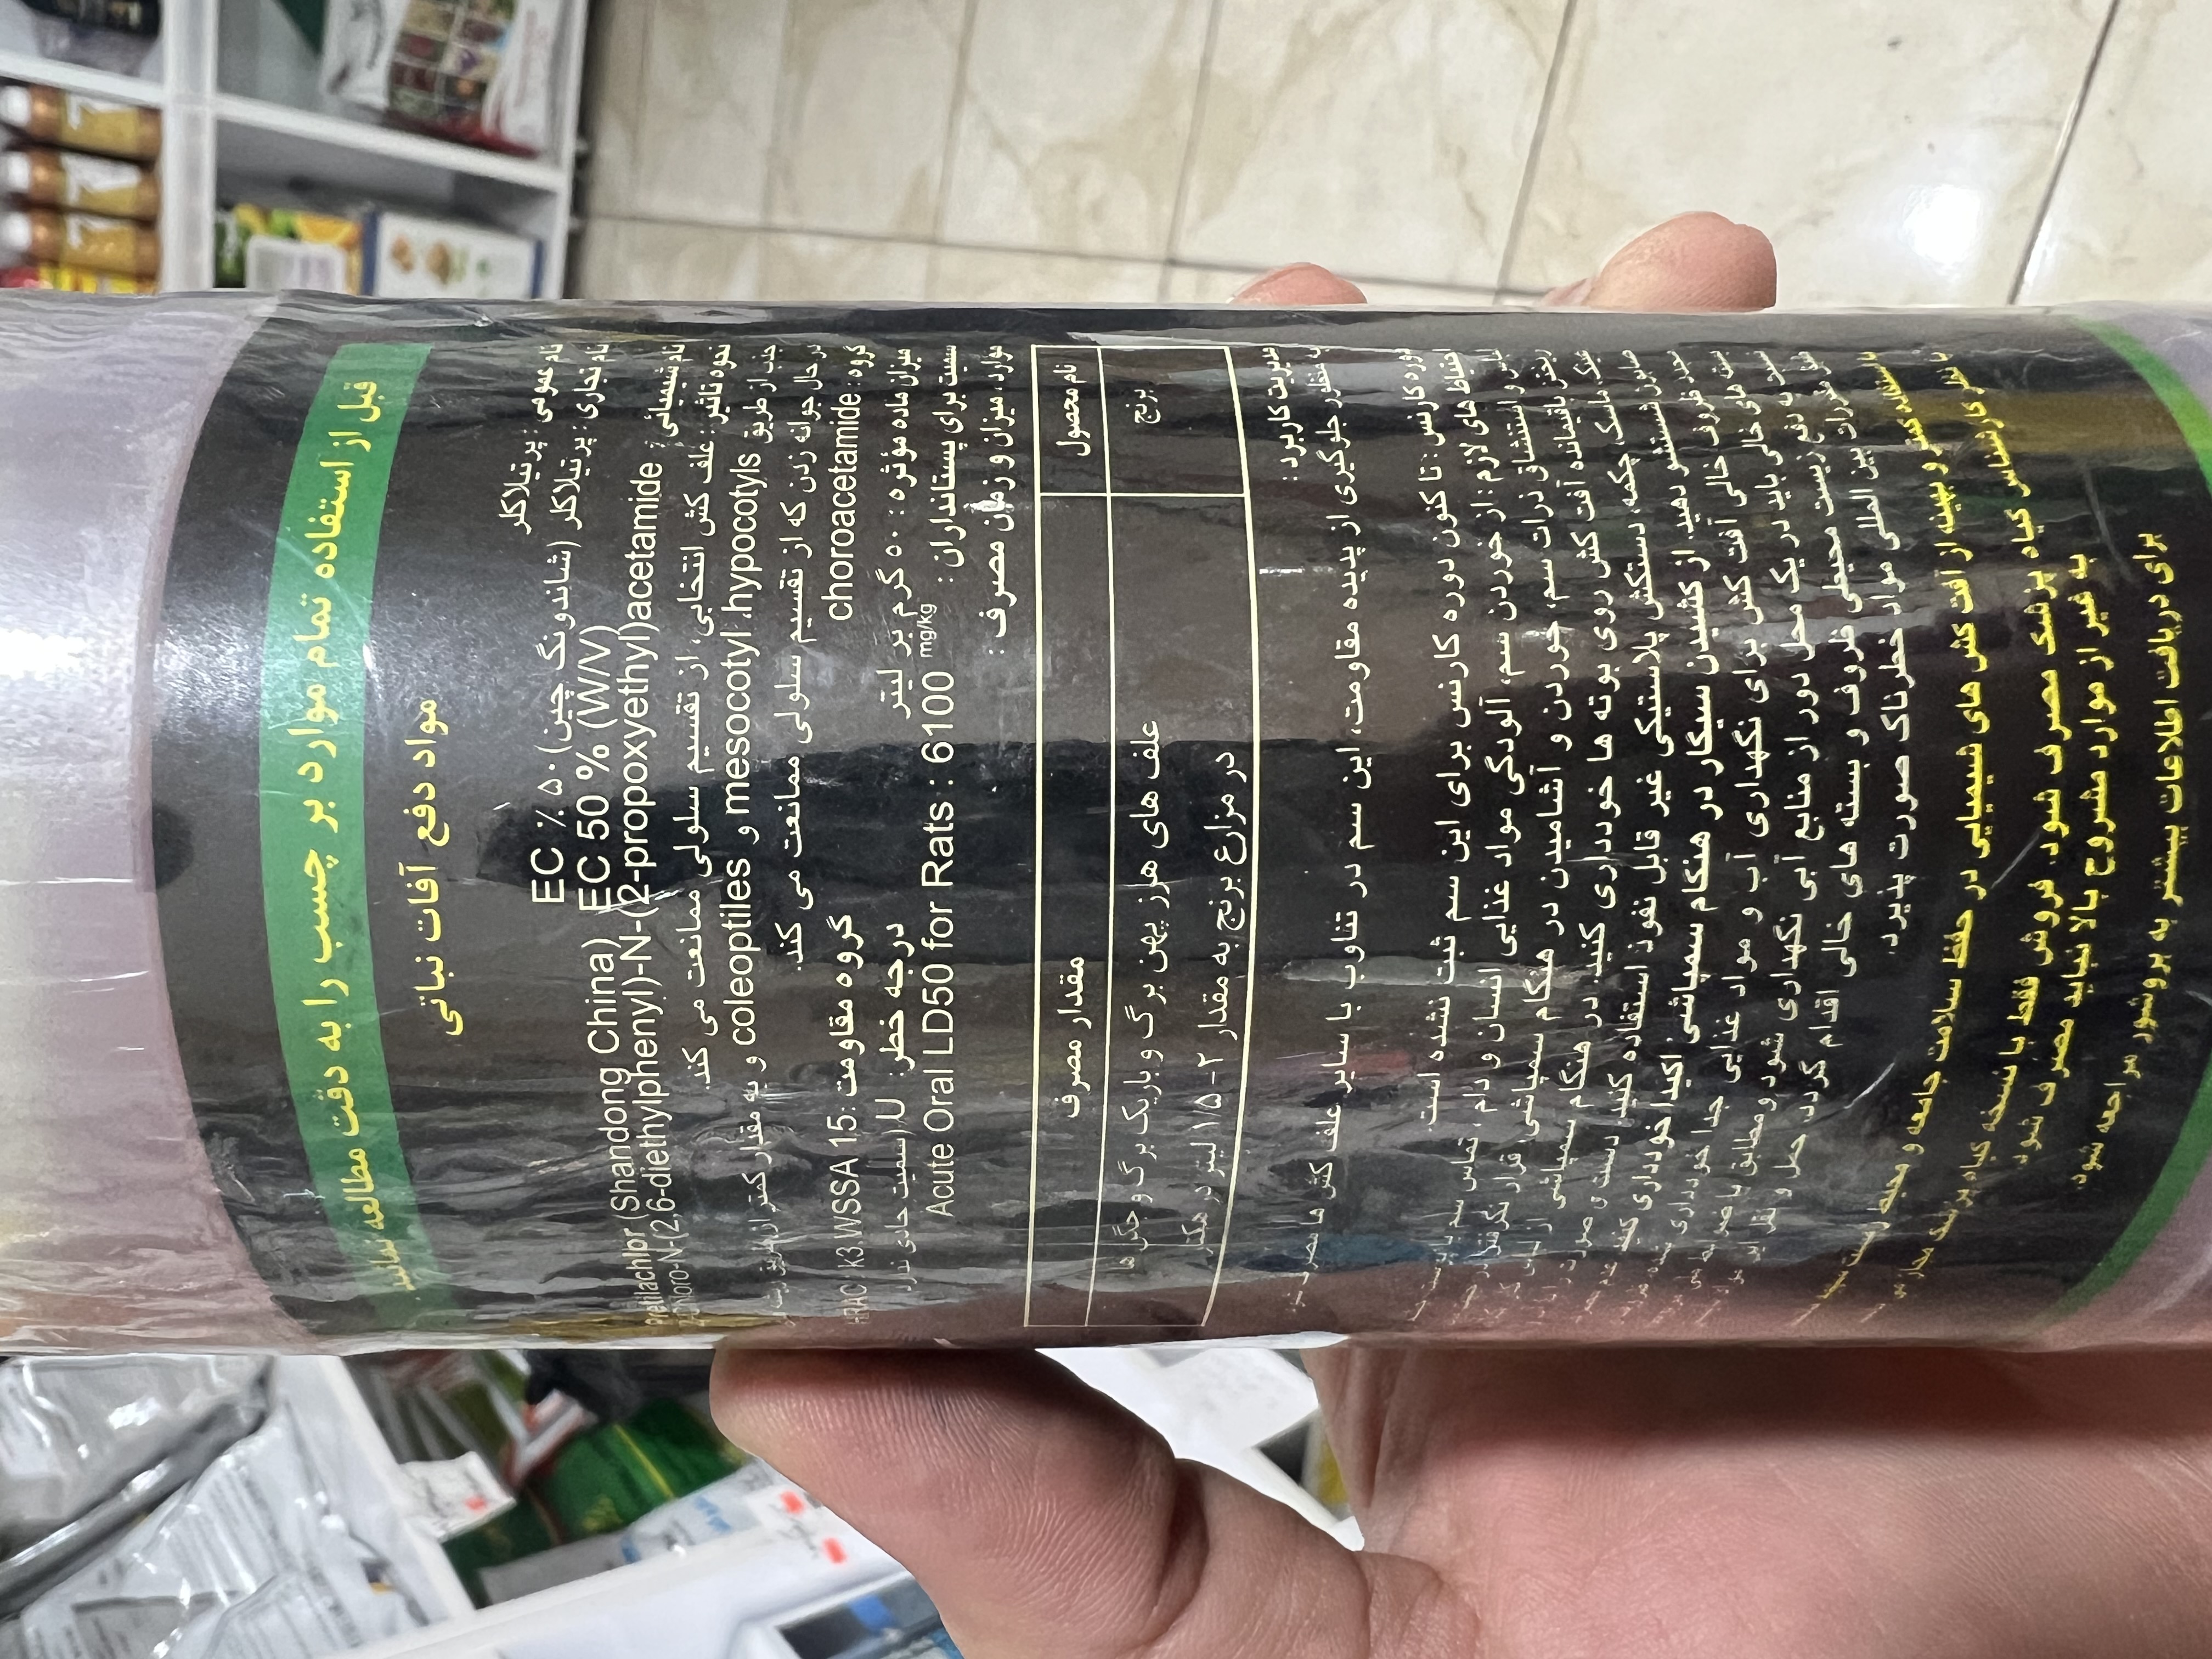 قبل از استفاده تمام موارد بر چسب را به دقت مطالعه نمائید
مواد دفع آفات نباتی
نام عمومی : پرتیلاکلر
نام تجاری : پرتیلاکلر (شاندونگ چین) ۵۰ ٪ EC
Pretilachlor (Shandong China) EC 50 % (W/V)
نام شیمیائی : -N-(2,6-diethylphenyl)-N-(2-propoxyethyl)acetamide
نحوه تأثیر : علف کش انتخابی، از تقسیم سلولی ممانعت می کند.
جذب از طریق hypocotyls، mesocotyl و coleoptiles و به مقدار کمتر از طریق
در حال جوانه زدن که از تقسیم سلولی ممانعت می کند.
گروه : choroacetamide گروه مقاومت : HRAC K3 WSSA 15
میزان ماده مؤثره : ۵۰ گرم بر لیتر درجه خطر: U (سمیت حادی ندارد
سمیت برای پستانداران : Acute Oral LD50 for Rats : 6100 mg/kg
موارد، میزان و زمان مصرف :
نام محصول مقدار مصرف
برنج علف های هرز پهن برگ و باریک برگ و جگن ها
در مزارع برنج به مقدار ۲-۱/۵ لیتر در هکتار
مدیریت کاربرد :
به منظور جلوگیری از پدیده مقاومت، این سم در تناوب با سایر علف کش ها مصرف
دوره کارنس : تا کنون دوره کارنس برای این سم ثبت نشده است.
احتیاط های لازم : از خوردن سم، آلودگی مواد غذایی انسان و دام ، تماس سم با پوست
و استنشاق ذرات سم، خوردن و آشامیدن در هنگام سمپاشی، قرار گرفتن در
باقیمانده آفت کش روی بوته ها خودداری کنید. در هنگام سمپاشی از
عینک، ماسک، چکمه، دستکش پلاستیکی غیر قابل نفوذ استفاده کنید. دست و صورت
صابون شستشو دهید. از کشیدن سیگار در هنگام سمپاشی اکیداً خودداری کنید.
ظروف خالی آفت کش برای نگهداری آب و مواد غذایی جدا خودداری
های خالی باید در یک محل دور از منابع آبی نگهداری شود و مطابق با ضوابط
دفع زیست محیطی ظروف و بسته های خالی اقدام گردد. حمل و نقل این
مقررات بین المللی مواد خطرناک صورت پذیرد.
استفاده کمتر و بهینه از آفت کش های شیمیایی در حفظ سلامت جامعه و محیط زیست
با نظر کارشناس گیاه پزشک مصرف شود. فروش فقط با نسخه گیاه پزشک
به غیر از موارد مشروح بالا نباید مصرف شود.
برای دریافت اطلاعات بیشتر به بروشور مراجعه شود.